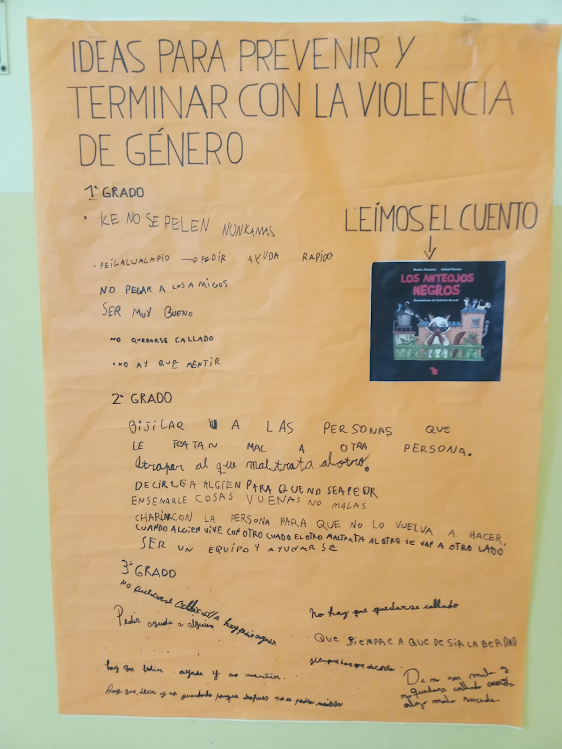 IDEAS PARA PREVENIR Y
TERMINAR CON LA VIOLENCIA
DE GÉNERO
1° GRADO
KE NO SE PELEN NUNKAMAS
LEÍMOS EL CUENTO
LOS ANTEOJOS
NEGROS
→ PEDIR AYUDA RAPIDO
NO PEGAR A LOS AMIGOS
SER MUY BUENO
NO QUEDARSE CALLADO
NO AY QUE MENTIR
2° GRADO
BIJILAR A LAS PERSONAS QUE
LE TRATAN MAL A OTRA PERSONA.
Atrapar al que maltrata al otro.
DECIRLE A ALGIEN PARA QUE NO SEA PEOR
ENSENARLE COSAS VUENAS NO MALAS
CHARLAR CON LA PERSONA PARA QUE NO LO VUELVA A HACER.
CUANDO ALGIEN VIVE CON OTRO CUADO EL OTRO MALTRATA AL OTRO SE VAN A OTRO LADO
SER UN EQUIPO Y AYUNARSE
3° GRADO
Pedir ayuda a alguien
no hay que quedarse callado
QUE SIEMPRE A QUE DESIR LA BERDAD
hay que pedir ayuda y no mentir.
siempre hay que decirlo
Hay que decir y no guardarlo porque despues no se puede
algo malo sucede.